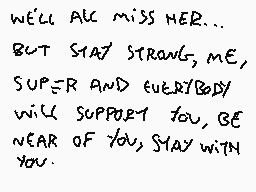 WE'LL ALL MISS HER...
BUT STAY STRONG, ME,
SUPER AND EVERYBODY
WILL SUPPORT YOU, BE
NEAR OF YOU, STAY WITH
YOU.